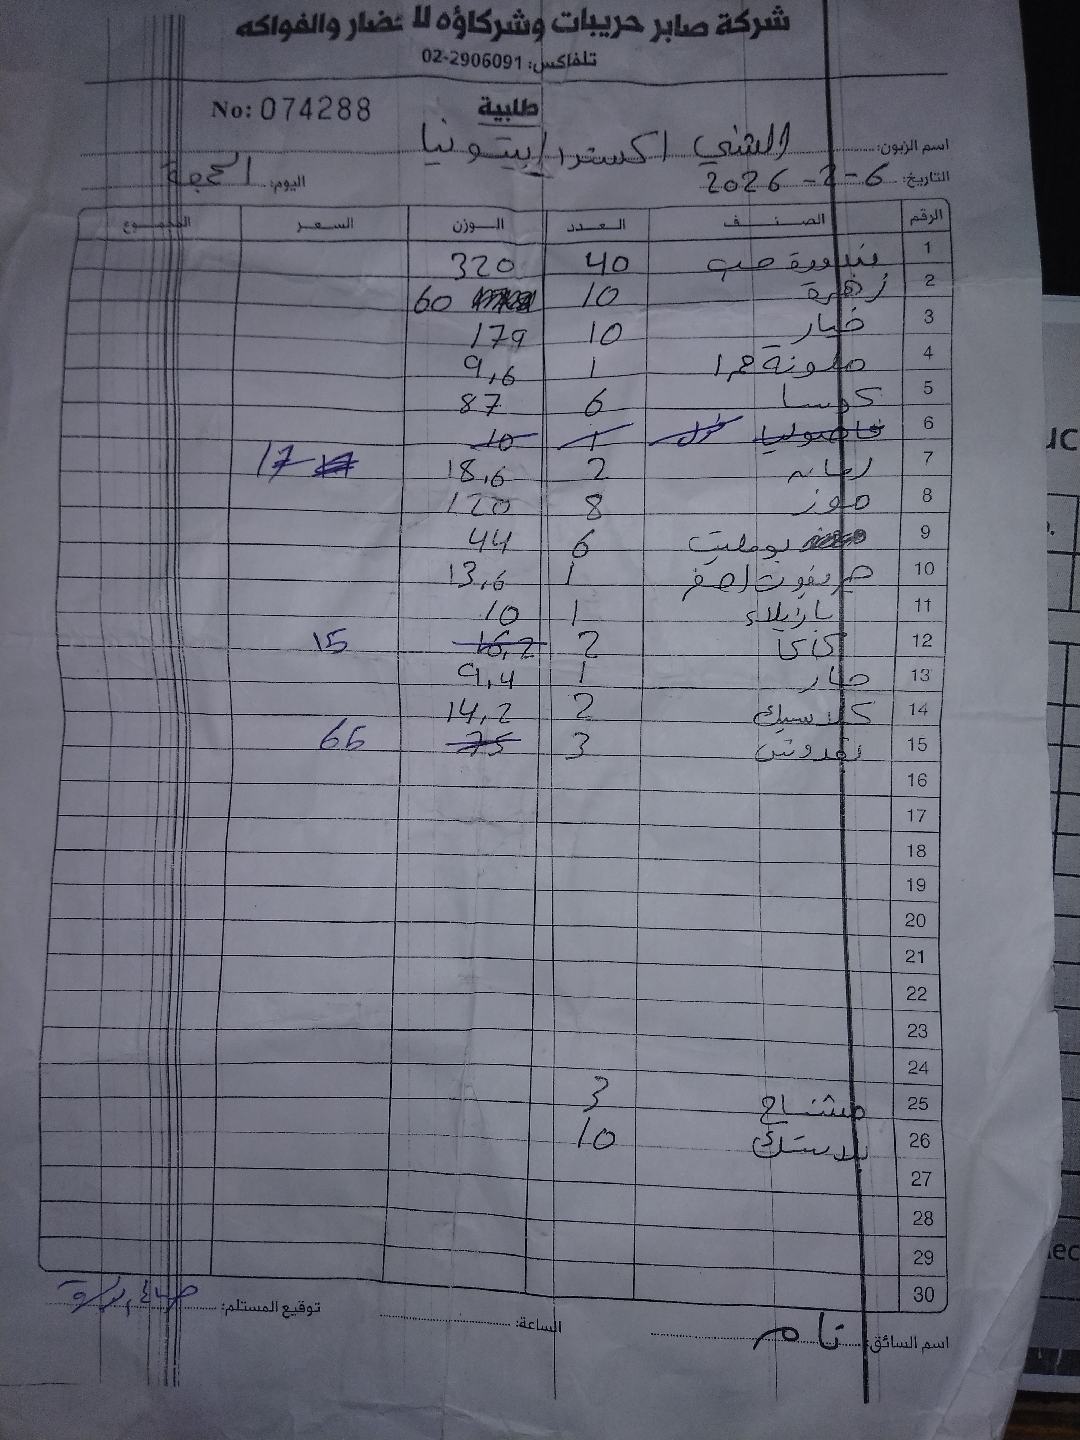 شركة صابر حريبات وشركاؤه للخضار والفواكه
تلفاكس: 02-2906091
No: 074288
طلبية
اسم الزبون: الشني اكسترا بيتونيا
التاريخ: 6-2-2026 اليوم: الجمعة
الرقم الصنف العدد الوزن السعر المجموع
1 بندورة حب 40 320
2 زهرة 10 60
3 خيار 10 179
4 ملونة حمرا 1 9,6
5 كوسا 6 87
6 فاصوليا 1 10
7 رمانه 2 18,6 17
8 موز 8 120
9 بومليت 6 44
10 جريفوت احمر 1 13,6
11 بازيلاء 1 10
12 كاكا 2 16,2 15
13 حار 1 9,4
14 كلاسيك 2 14,2
15 بقدونس 3 75 65
16
17
18
19
20
21
22
23
24
25 مشتاح 3
26 بلاستك 10
27
28
29
30
توقيع المستلم:
الساعة:
اسم السائق: